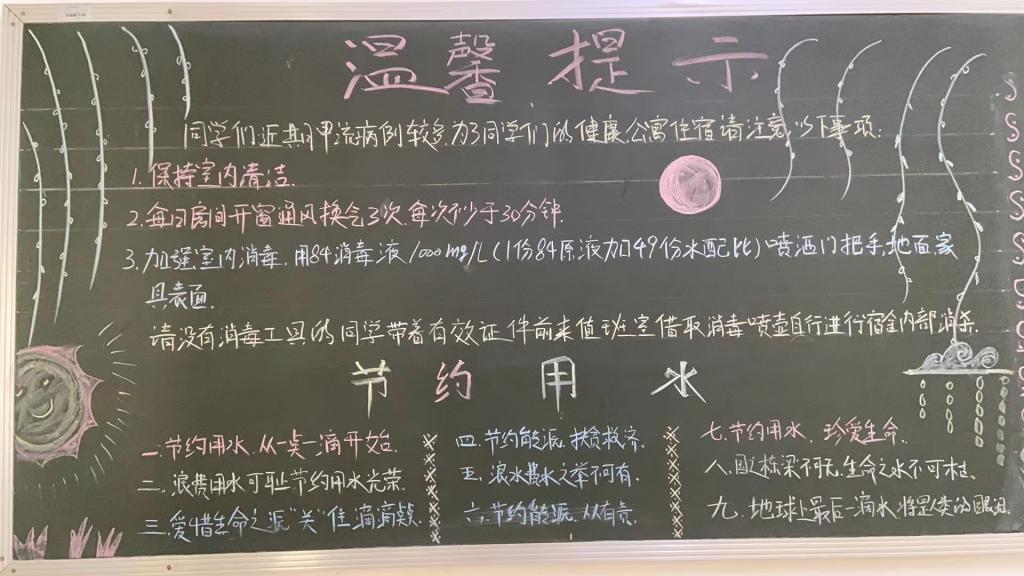 温馨提示
同学们近期甲流病例较多为了同学们的健康,公寓住宿请注意以下事项:
1.保持室内清洁.
2.每日房间开窗通风换气3次,每次不少于30分钟.
3.加强室内消毒.用84消毒液1000mg/L(1份84原液加49份水配比)喷洒门把手,地面,家
具表面.
请没有消毒工具的同学带着有效证件前来值班室借取消毒喷壶自行进行宿舍内部消杀.
节约用水
一.节约用水.从一点一滴开始.
二.浪费用水可耻节约用水光荣
三.爱惜生命之源"关"住滴滴
四.节约能源.扶贫救济.
五.浪水费水之举不可有.
六.节约能源.从有责.
七.节约用水.珍爱生命.
八.国之栋梁不可,生命之水不可
九.地球上最后一滴水,将是人类的眼泪